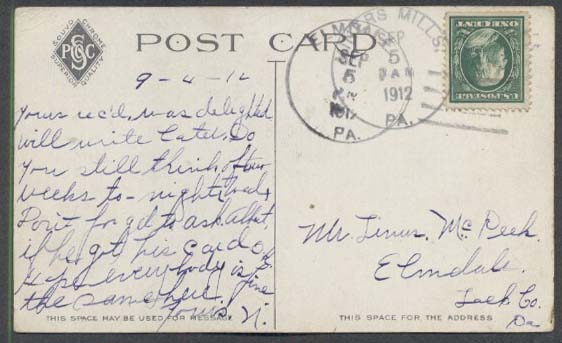 SOUVO CHROME
PSCC
SUPERIOR QUALITY
POST CARD
9-4-12
Yours rec'd, was delighted
will write later. Do
you still think of two
weeks to-night
Don't forget to ask Albt.
if he got his card.
Hope everybody is fine
the same here.
Yours, N.
THIS SPACE MAY BE USED FOR MESSAGE
MILLS
SEP
5
AM
1912
PA.
SEP
5
1912
PA.
ONE CENT
U.S. POSTAGE
Mr. Linus Mc Peek.
Elmdale.
Lack. Co.
Pa
THIS SPACE FOR THE ADDRESS